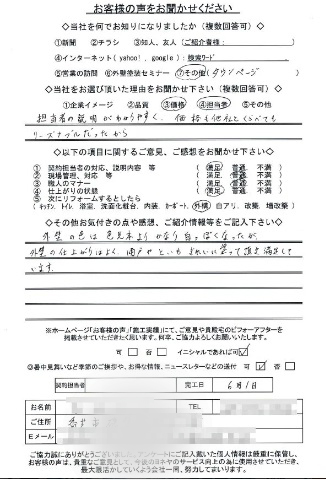 お客様の声をお聞かせください
◇当社を何でお知りになりましたか（複数回答可）◇
①新聞 ②チラシ ③知人、友人（ご紹介者様： ）
④インターネット（yahoo!、google）：検索ワード
⑤営業の訪問 ⑥外壁塗装セミナー ⑦その他（タウンページ）
◇当社をお選び頂いた理由をお聞かせ下さい（複数回答可）◇
①企業イメージ ②品質 ③価格 ④担当者 ⑤その他
担当者の説明がわかりやすく、価格も他社とくらべても
リーズナブルだったから
◇以下の項目に関するご意見、ご感想をお聞かせ下さい◇
① 契約担当者の対応、説明内容 等 （満足 普通 不満）
② 現場管理、対応 等 （満足 普通 不満）
③ 職人のマナー （満足 普通 不満）
④ 仕上がりの状態 （満足 普通 不満）
⑤ 次にリフォームするとしたら
（キッチン、トイレ、浴室、洗面化粧台、内装、カーポート、外構、白アリ、改築、増改築）
◇その他お気付きの点や感想、ご紹介情報等をご記入下さい◇
外壁の色は色見本よりかなり白っぽくなったが、
外壁の仕上がりはよく、雨戸やといもきれいに塗って頂き満足して
います。
※ホームページ「お客様の声」「施工実績」にて、ご意見や貴殿宅のビフォーアフターを
掲載させていただきたく思います。何卒、ご協力よろしくお願いいたします。
可 否 イニシャルであれば可
◎暑中見舞いなど季節のご挨拶や、お得な情報、ニュースレターなどの送付 可 否
契約担当者 完工日 6月1日
お名前 TEL
ご住所
Eメール
ご協力誠にありがとうございました。アンケートにご記入頂いた個人情報は厳重に保管し、
お客様の声は、貴重なご意見として、今後のヨネヤのサービス向上の為に使用させていただき、
最大限活かしていくよう会社一同、努力してまいります。